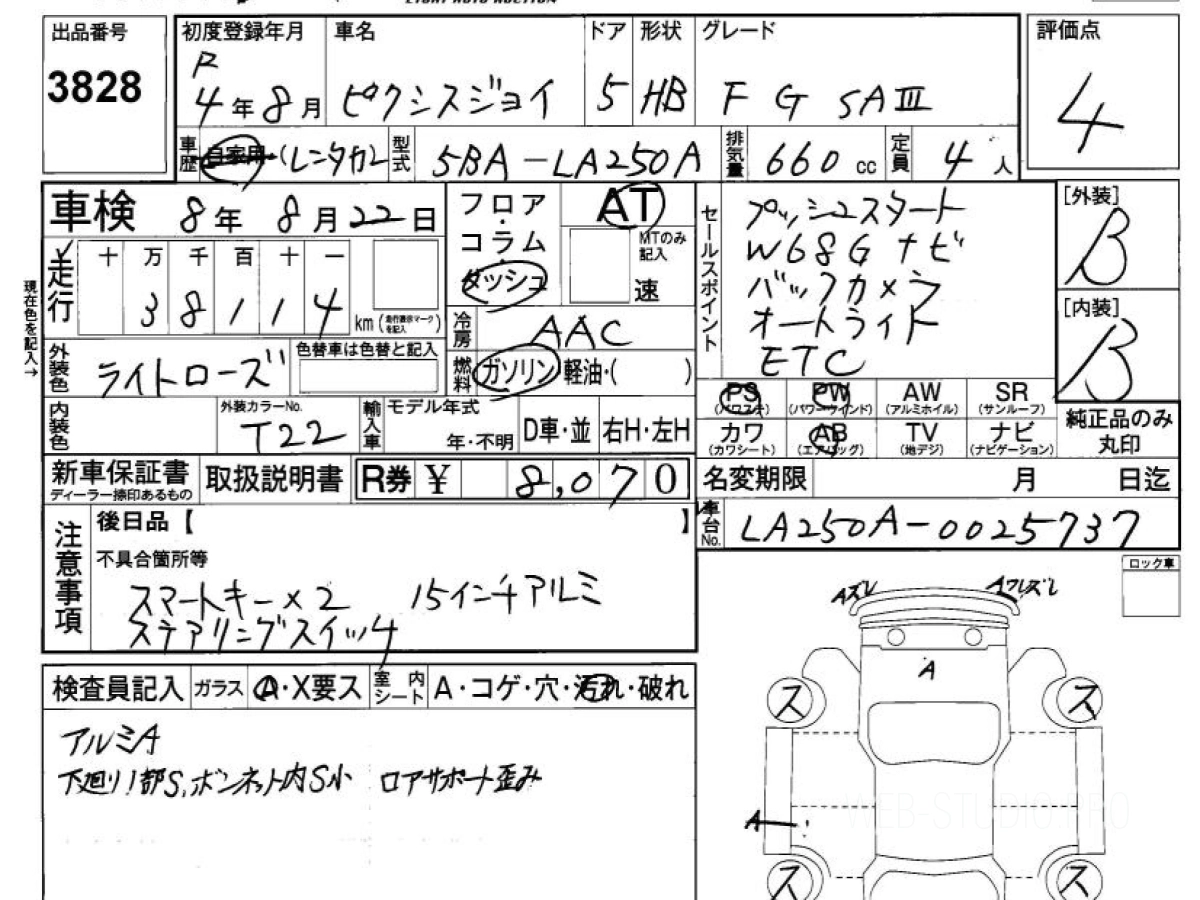 出品番号
3828
初度登録年月
R
4年8月
車名
ピクシスジョイ
ドア
5
形状
HB
グレード
F G SAⅢ
評価点
4
車歴
自家用(レンタカ)
型式
5BA-LA250A
排気量
660 cc
定員
4人
車検
8年8月22日
フロア・コラム
ダッシュ
AT
MTのみ記入
速
セールスポイント
プッシュスタート
W68Gナビ
バックカメラ
オートライト
ETC
[外装]
B
[内装]
B
走行
十 万 千 百 十 一
3 8 1 1 4
km(走行表示マークを記入)
現在色を記入→
冷房
AAC
外装色
ライトローズ
色替車は色替と記入
燃料
ガソリン 軽油・( )
PS(パワステ) PW(パワーウインド) AW(アルミホイル) SR(サンルーフ)
カワ(カワシート) AB(エアバッグ) TV(地デジ) ナビ(ナビゲーション)
純正品のみ丸印
内装色
外装カラーNo.
T22
輸入車
モデル年式
年・不明
D車・並
右H・左H
新車保証書
ディーラー捺印あるもの
取扱説明書
R券 ¥ 8,070
名変期限
月 日迄
車台No.
LA250A-0025737
注意事項
後日品【 】
不具合箇所等
スマートキー×2 15インチアルミ
ステアリングスイッチ
ロック車
検査員記入
ガラス
A・X要ス
室内シート
A・コゲ・穴・汚れ・破れ
アルミA
下廻り1部S、ボンネット内S小 ロアサポート歪み
Aズレ
Aワレズレ
A
ス
ス
A
ス
ス
WEB-STUDIO.PRO